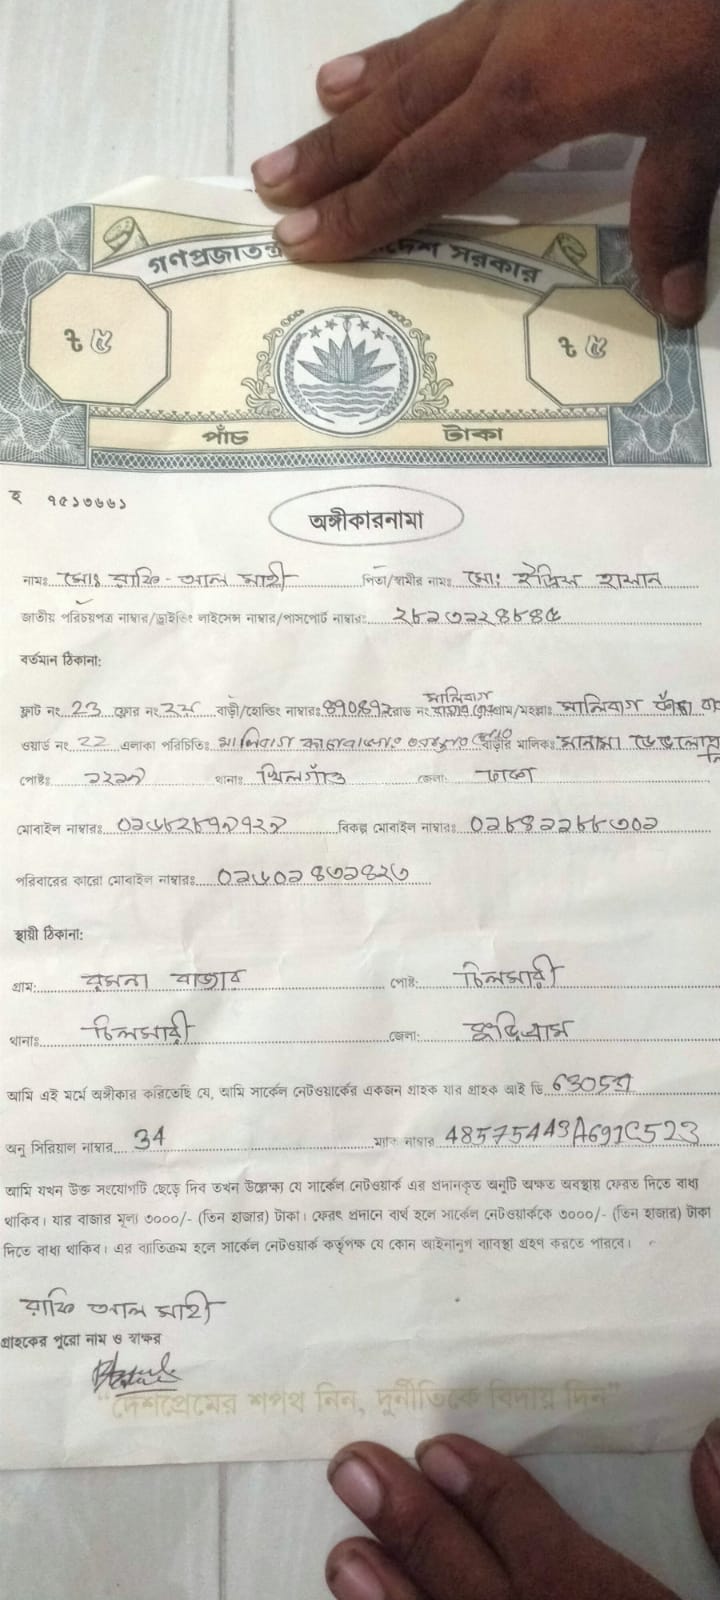 গণপ্রজাতন্ত্র দেশ সরকার
৳ ৫ ৳ ৫
পাঁচ টাকা
হ ৭৫১৩৬৬১
অঙ্গীকারনামা
নামঃ মোঃ রাফি-আল মাহী পিতা/স্বামীর নামঃ মো: ইদ্রিস হাসান
জাতীয় পরিচয়পত্র নাম্বার/ড্রাইভিং লাইসেন্স নাম্বার/পাসপোর্ট নাম্বারঃ
বর্তমান ঠিকানা:
মালিবাগ
ফ্লাট নং 23 ফ্লোর নং বাড়ী/হোল্ডিং নাম্বারঃ রোড নং গ্রাম/মহল্লাঃ মালিবাগ
ওয়ার্ড নং 22 এলাকা পরিচিতিঃ মালিবাগ বাড়ীর মালিকঃ
পোষ্টঃ ১২১৯ থানাঃ খিলগাঁও জেলা: ঢাকা
মোবাইল নাম্বারঃ বিকল্প মোবাইল নাম্বারঃ
পরিবারের কারো মোবাইল নাম্বারঃ
স্থায়ী ঠিকানা:
গ্রাম: রমনা বাজার পোষ্ট: চিলমারী
থানাঃ চিলমারী জেলা: কুড়িগ্রাম
আমি এই মর্মে অঙ্গীকার করিতেছি যে, আমি সার্কেল নেটওয়ার্কের একজন গ্রাহক যার গ্রাহক আই ডি
অনু সিরিয়াল নাম্বার 34 ম্যাক নাম্বার 48575443A691C523
আমি যখন উক্ত সংযোগটি ছেড়ে দিব তখন উল্লেক্ষ্য যে সার্কেল নেটওয়ার্ক এর প্রদানকৃত অনুটি অক্ষত অবস্থায় ফেরত দিতে বাধ্য
থাকিব। যার বাজার মূল্য ৩০০০/- (তিন হাজার) টাকা। ফেরৎ প্রদানে ব্যর্থ হলে সার্কেল নেটওয়ার্ককে ৩০০০/- (তিন হাজার) টাকা
দিতে বাধ্য থাকিব। এর ব্যতিক্রম হলে সার্কেল নেটওয়ার্ক কর্তৃপক্ষ যে কোন আইনানুগ ব্যাবস্থা গ্রহণ করতে পারবে।
রাফি আল মাহী
গ্রাহকের পুরো নাম ও স্বাক্ষর
"দেশপ্রেমের শপথ নিন, দুর্নীতিকে বিদায় দিন"